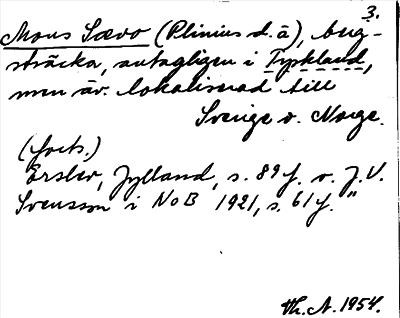 3.
Mons Saevo (Plinius d. ä), berg-
sträcka, antagligen i Tyskland,
men äv. lokaliserad till
Sverige o. Norge.
(forts.)
Erslev, Jylland, s. 89 f. o. J. V.
Svensson i NoB 1921, s. 61 f. "
Th. A. 1954.